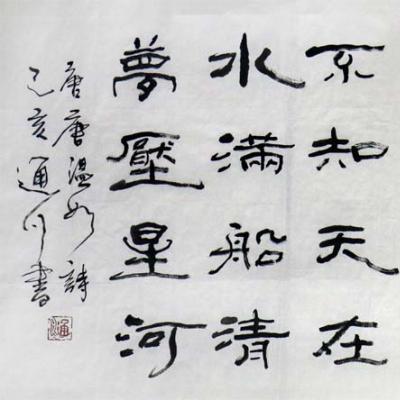 不知天在
水滿船清
夢壓星河
唐唐溫如詩
己亥通書